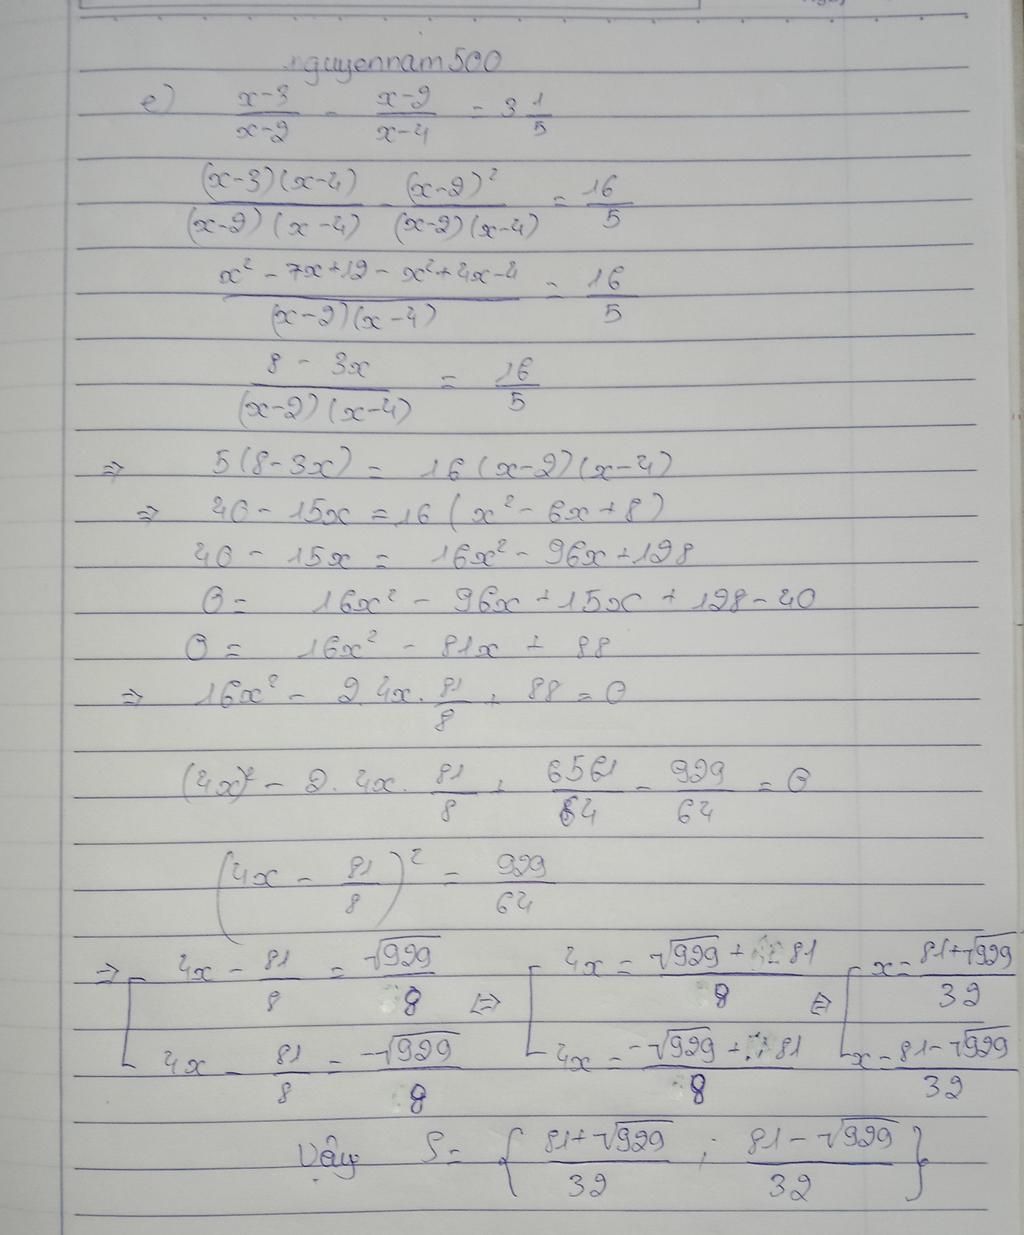 nguyennam500
e) \frac{x-3}{x-2} - \frac{x-2}{x-4} = 3\frac{1}{5}
\frac{(x-3)(x-4)}{(x-2)(x-4)} - \frac{(x-2)^2}{(x-2)(x-4)} = \frac{16}{5}
\frac{x^2 - 7x + 12 - x^2 + 4x - 4}{(x-2)(x-4)} = \frac{16}{5}
\frac{8 - 3x}{(x-2)(x-4)} = \frac{16}{5}
⇒ 5(8-3x) = 16(x-2)(x-4)
⇒ 40 - 15x = 16(x^2 - 6x + 8)
40 - 15x = 16x^2 - 96x + 128
0 = 16x^2 - 96x + 15x + 128 - 40
0 = 16x^2 - 81x + 88
⇒ 16x^2 - 2.4x.\frac{81}{8} + 88 = 0
(4x)^2 - 2.4x.\frac{81}{8} + \frac{6561}{64} - \frac{929}{64} = 0
(4x - \frac{81}{8})^2 = \frac{929}{64}
⇒ [ 4x - \frac{81}{8} = \frac{\sqrt{929}}{8} ⇔ [ 4x = \frac{\sqrt{929} + 81}{8} ⇔ [ x = \frac{81+\sqrt{929}}{32}
4x - \frac{81}{8} = \frac{-\sqrt{929}}{8} 4x = \frac{-\sqrt{929} + 81}{8} x = \frac{81-\sqrt{929}}{32}
Vậy S = { \frac{81+\sqrt{929}}{32} ; \frac{81-\sqrt{929}}{32} }